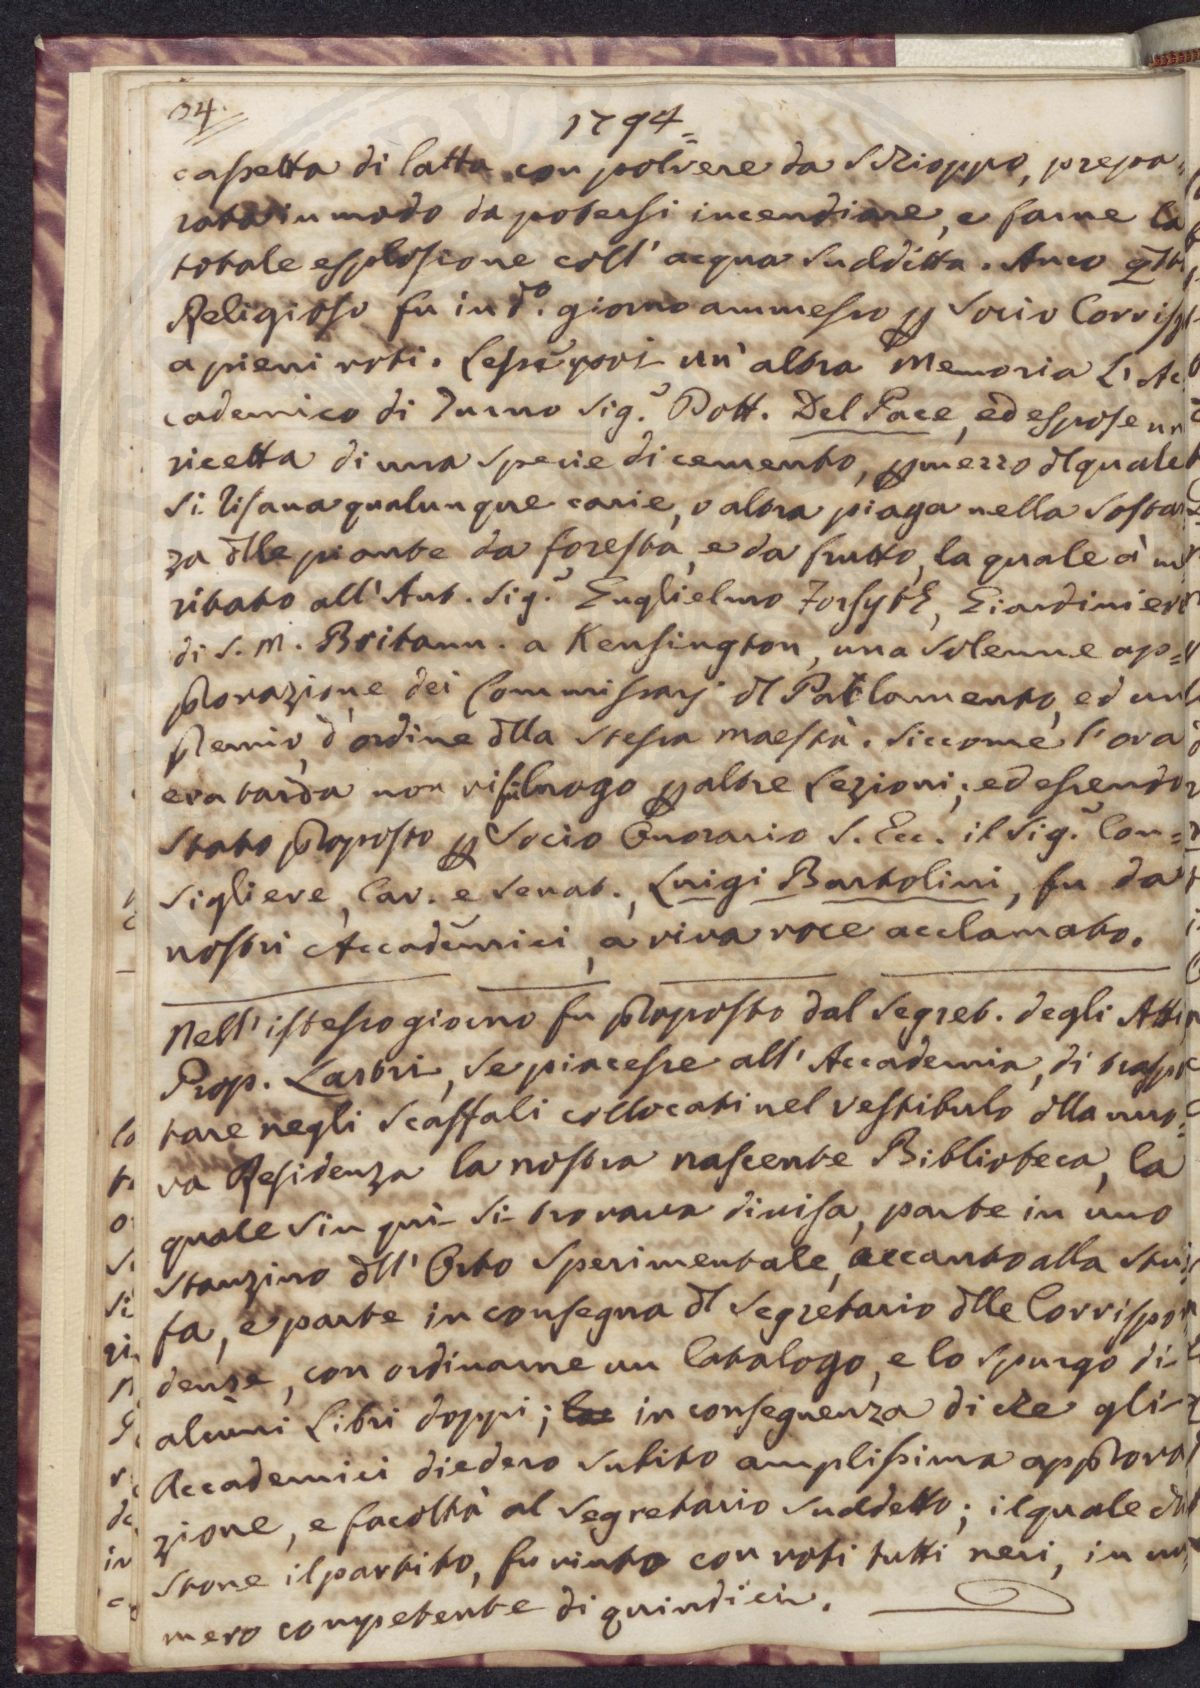 24.
1794=
cassetta di latta con polvere da schioppo, prepa=
rata in modo da potersi incendiare, e farne la
totale esplosione coll' acqua suddetta. Anco qsto
Religioso fu in do. giorno ammesso p Socio Corrisp
a pieni voti. Lesse poi un' altra Memoria L' Ac
cademico di Turno Sig.r Dott. Del Pace, ed espose un
ricetta di una specie di cemento, p mezzo dl quale
si risana qualunque carie, o altra piaga nella sostan
za dlle piante da foresta, e da frutto, la quale à me
ritato all' Aut. Sig.r Guglielmo Forsyth, Giardiniere
di S. M. Britann. a Kensington, una solenne ap=
provazione dei Commissarj dl Parlamento, ed un
premio, d' ordine dlla stessa maestà. Siccome l' ora
era tarda non vi fu luogo p altre Lezioni; ed essendo
stato proposto p Socio Onorario S. Ecc. il Sig.r Con=
sigliere, Cav. e Senat., Luigi Bartolini, fu da
nostri Accademici, a viva voce acclamato.
Nell' istesso giorno fu proposto dal Segret. degli Atti
Prop. Lastri, se piacesse all' Accademia, di traspo
tare negli Scaffali collocati nel vestibulo dlla nuo=
va Residenza la nostra nascente Biblioteca, la
quale sin quì si trovava divisa, parte in uno
stanzino dll' Orto Sperimentale, accanto alla stu
fa, e parte in consegna dl Segretario dlle Corrispon
denze, con ordinarne un Catalogo, e lo spurgo di
alcuni Libri doppi; in conseguenza di che gli
Accademici diedero subito amplissima approva
zione, e facoltà al Segretario suddetto; il quale
stone il partito, fu vinto con voti tutti neri, in nu
mero competente di quindici.